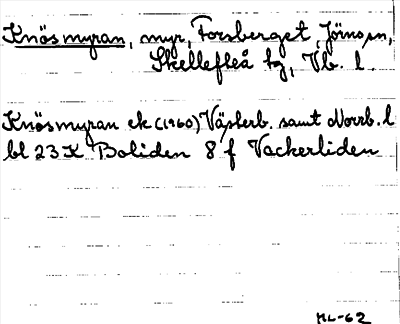 Knösmyran, myr, Forsberget, Jörns sn,
Skellefteå tg, Vb. l.
Knösmyran ek (1960) Västerb. samt Norrb. l
bl 23 K Boliden 8 f Vackerliden
ML-62